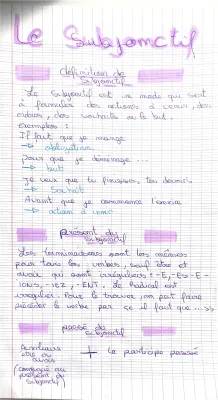 Le Subjonctif
définition du
subjonctif
Le Subjonctif est un mode qui sert
à formuler des actions à venir, des
ordres, des souhaits ou le but.
exemples :
Il faut que je mange
→ obligation
Pour que je déménage...
→ but
Je veux que tu finisses tes devoirs
→ Souhait
Avant que je commence l'exercice
→ action à venir
présent du
subjonctif
Les terminaisons sont les mêmes
pour tous les verbes, sauf être et
avoir qui sont irréguliers : -E, -ES -E -
IONS, -IEZ, -ENT. Le Radical est
irrégulier. Pour le trouver, on peut faire
précéder le verbe par « il faut que ... »
passé du
subjonctif
Auxiliaires
être ou
avoir
+ le participe passé
(conjugué au
présent du
subjonctif)